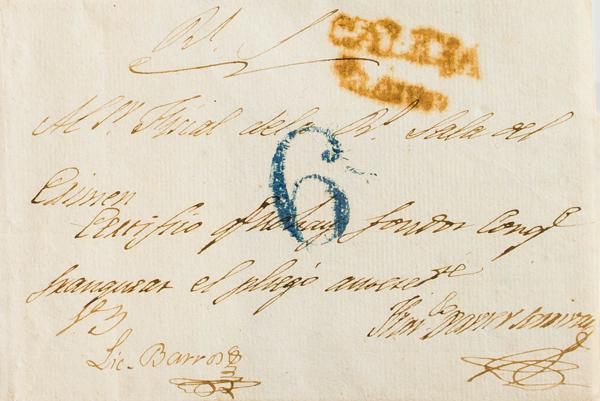 Rl. S.
GALICIA
Al Sr. Fiscal dela Rl. Sala del
6
Crimen
Certifico q. no hay fondos con q.
franquear el pliego
VB
Lic. Barros